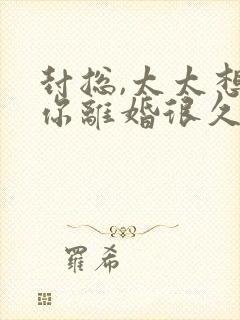 封总,太太想
你離婚很久
羅希